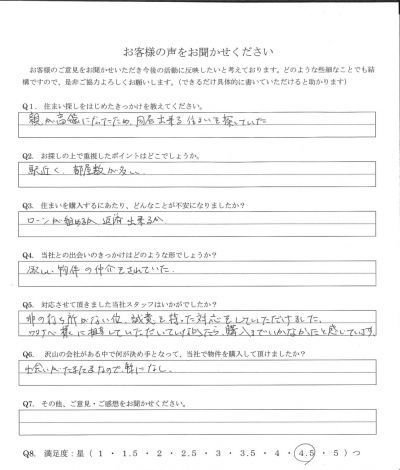 お客様の声をお聞かせください
お客様のご意見をお聞かせいただき今後の活動に反映したいと考えております。どのような些細なことでも結
構ですので、是非ご協力よろしくお願いします。（できるだけ具体的に書いていただけると助かります）
Q1. 住まい探しをはじめたきっかけを教えてください。
親が高齢になったため、同居出来る住まいを探していた
Q2. お探しの上で重視したポイントはどこでしょうか。
駅近く、部屋数が多い
Q3. 住まいを購入するにあたり、どんなことが不安になりましたか？
ローンが組めるか 返済出来るか
Q4. 当社との出会いのきっかけはどのような形でしょうか？
欲しい物件の仲介をされていた。
Q5. 対応させて頂きました当社スタッフはいかがでしたか？
非の打ち所がない位、誠意を持った対応をしていただけました。
様に担当していただいていなかったら、購入までいかなかったと感じています
Q6. 沢山の会社がある中で何が決め手となって、当社で物件を購入して頂けましたか？
出会いがたまたまなので、特になし
Q7. その他、ご意見・ご感想をお聞かせください。
Q8. 満足度：星（ 1 ・ 1.5 ・ 2 ・ 2.5 ・ 3 ・ 3.5 ・ 4 ・ 4.5 ・ 5 ）つ